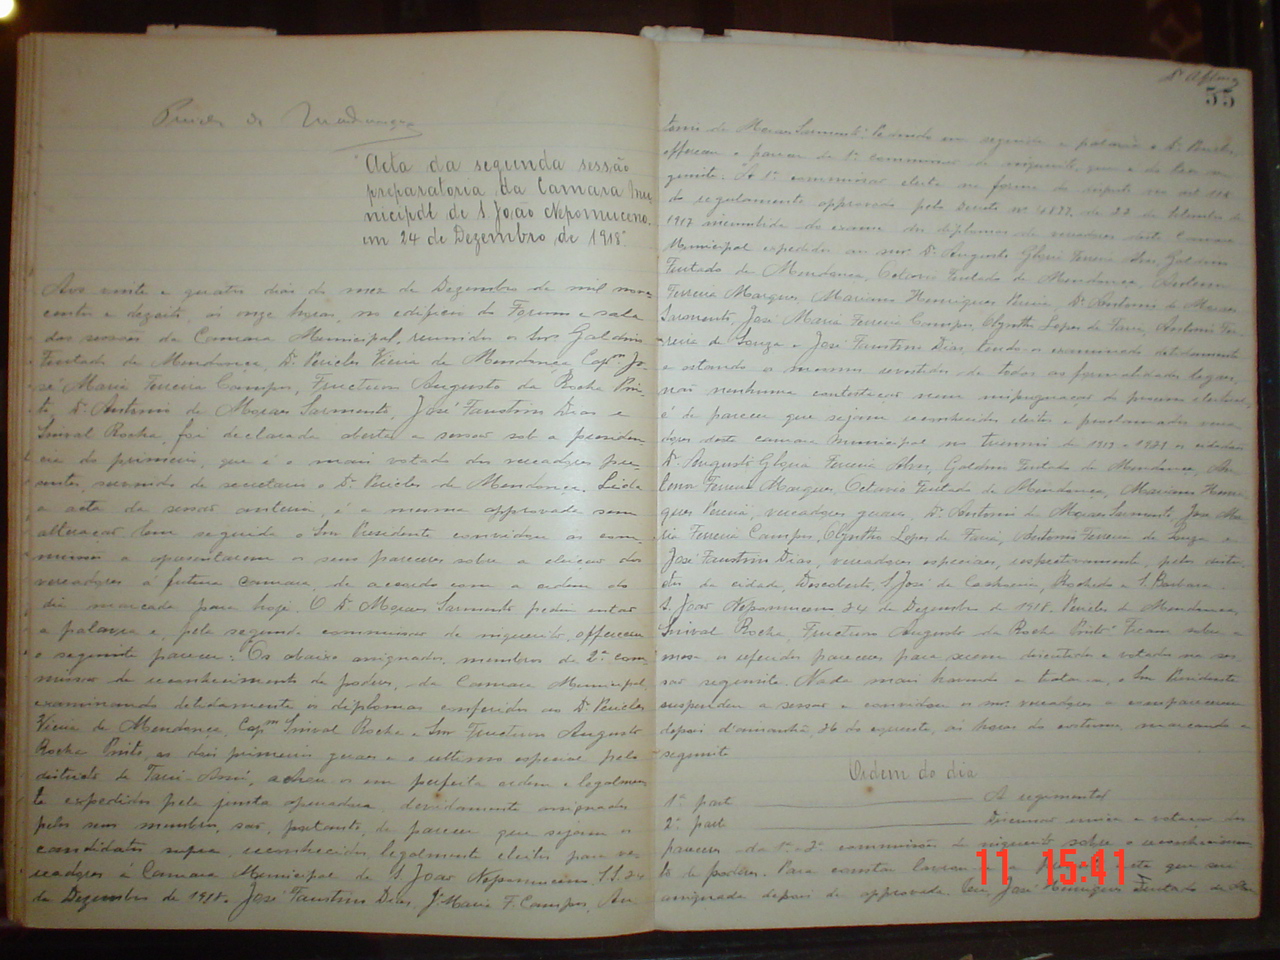 Pericles de Mendonça
Acta da segunda sessão
preparatoria da Camara Mu-
nicipal de S. João Nepomuceno.
em 24 de Dezembro de 1918
Aos vinte e quatro dias do mez de Dezembro de mil nove-
centos e dezoito, ás onze horas, no edificio do Forum e sala
das sessões da Camara Municipal, reunidos os Snrs Galdino
Furtado de Mendonça, Dr. Pericles Vieira de Mendonça, Capm Jo-
sé Maria Ferreira Campos, Fructuoso Augusto da Rocha Pin-
to, Dr. Antonio de Moraes Sarmento, José Faustino Dias e
Sinval Rocha, foi declarada aberta a sessão sob a presiden-
cia do primeiro, que é o mais votado dos vereadores pre-
sentes, servindo de secretario o Dr. Pericles de Mendonça. Lida
a acta da sessão anterior, é a mesma approvada sem
alteração. Em seguida o Snr Presidente convidou as com-
missões a apresentarem os seus pareceres sobre a eleição dos
vereadores á futura camara, de accordo com a ordem do
dia marcada para hoje. O Dr. Moraes Sarmento pediu então
a palavra e, pela segunda commissão de inquerito, offereceu
o seguinte parecer: Os abaixo assignados, membros da 2ª com-
missão de reconhecimento de poderes, da Camara Municipal,
examinando detidamente os diplomas conferidos ao Dr. Pericles
Vieira de Mendonça, Capm Sinval Rocha e Snr Fructuoso Augusto
Rocha Pinto, os dois primeiros geraes e o ultimo especial pelo
districto de Assú, achou os em perfeita ordem e legalmen-
te expedidos pela junta apuradora, devidamente assignados
pelos seus membros, são, portanto, de parecer que sejam os
candidatos supra, reconhecidos legalmente eleitos para ve-
readores á Camara Municipal de S. João Nepomuceno. S.S. 24
de Dezembro de 1918. José Faustino Dias, J. Maria F. Campos, An-
55
tonio de Moraes Sarmento. Pedindo em seguida a palavra o Dr. Pericles,
offerece o parecer da 1ª commissão de inquerito, que é do theor se-
guinte: "A 1ª commissão eleita na forma do disposto no art 118
do regulamento approvado pelo Decreto nº 4877, de 22 de Setembro de
1917 incumbida do exame dos diplomas de vereadores desta Camara
Municipal expedidos aos snrs. Dr. Augusto Gloria Ferreira Alves, Galdino
Furtado de Mendonça, Octavio Furtado de Mendonça,
Ferreira Marques, Mariano Henriques Pereira, Dr. Antonio de Moraes
Sarmento, José Maria Ferreira Campos, Olyntho Lopes de Faria, Antonio Fer-
reira de Souza e José Faustino Dias, tendo os examinado detidamente
e estando os mesmos revestidos de todas as formalidades legaes,
não nenhuma contestação nem impugnação do processo eleitoral,
é de parecer que sejam reconhecidos eleitos e proclamados verea-
dores desta camara municipal no triennio de 1919 a 1921 os cidadãos
Dr. Augusto Gloria Ferreira Alves, Galdino Furtado de Mendonça,
Ferreira Marques, Octavio Furtado de Mendonça, Mariano Henri-
ques Pereira, vereadores geraes, Dr. Antonio de Moraes Sarmento, José Ma-
ria Ferreira Campos, Olyntho Lopes de Faria, Antonio Ferreira de Souza e
José Faustino Dias, vereadores especiaes, respectivamente, pelos distri-
ctos da cidade, Descoberto, S. José de Rochedo e S. Barbara.
S. João Nepomuceno, 24 de Dezembro de 1918. Pericles de Mendonça,
Sinval Rocha, Fructuoso Augusto da Rocha Pinto". Ficam sobre a
mesa os referidos pareceres para serem discutidos e votados na ses-
são seguinte. Nada mais havendo a tratar-se, o Snr Presidente
suspendeu a sessão e convidou os snrs. vereadores a comparecerem
depois d'amanhã, 26 do corrente, ás horas do costume, marcando a
seguinte
Ordem do dia
1ª parte A regimental
2ª parte Discussão unica e votação dos
pareceres da 1ª e 2ª commissão de inquerito sobre o reconhecimen-
to de poderes. Para constar lavrou-se a que será
assignada depois de approvada. Eu, José Henriques Furtado de
11 15:41